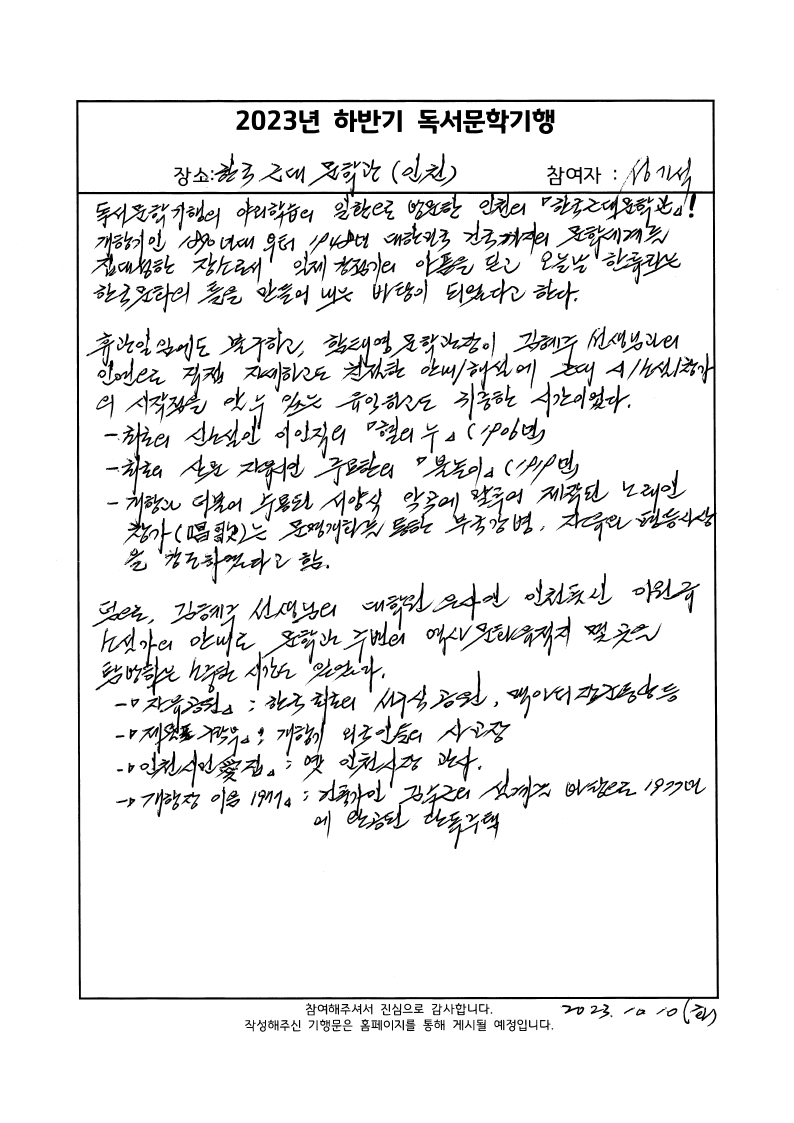 2023년 하반기 독서문학기행
장소:한국 근대 문학관 (인천) 참여자 : 성기석
독서문학기행의 야외학습의 일환으로 방문한 인천의 『한국근대문학관』!
개항기인 1890년대 부터 1948년 대한민국 건국까지의 문학세계를
집대성한 장소로서 일제 강점기의 아픔을 딛고 오늘날 한류라는
한국문화의 틀을 만들어 내는 바탕이 되었다고 한다.
휴관일임에도 불구하고, 함태영 문학관장이 김혜주 선생님과의
인연으로 직접 자세하고도 친절한 안내/해설에 근대 시/소설/창가
의 시작점을 알 수 있는 유익하고도 귀중한 시간이었다.
- 최초의 신소설인 이인직의 『혈의 누』 (1906년)
- 최초의 산문 자유시인 주요한의 『불놀이』 (1919년)
- 개항과 더불어 수용된 서양식 악곡에 맞추어 제작된 노래인
창가(唱歌)는 문명개화를 통한 부국강병, 자유와 평등사상
을 강조하였다고 함.
덤으로, 김혜주 선생님의 대학원 은사인 인천출신 이원규
소설가의 안내로 문학관 주변의 역사 문화유적지 몇 곳을
탐방하는 소중한 시간도 있었다.
-『자유공원』 : 한국 최초의 서구식 공원, 맥아더장군동상 등
-『제물포구락부』 : 개항기 외국인들의 사교장
-『인천시민愛집』 : 옛 인천시장 관사.
-『개항장 이음 1977』 : 건축가인 김수근의 설계를 바탕으로 1977년
에 완공된 단독주택
참여해주셔서 진심으로 감사합니다. 2023. 10. 10(화)
작성해주신 기행문은 홈페이지를 통해 게시될 예정입니다.